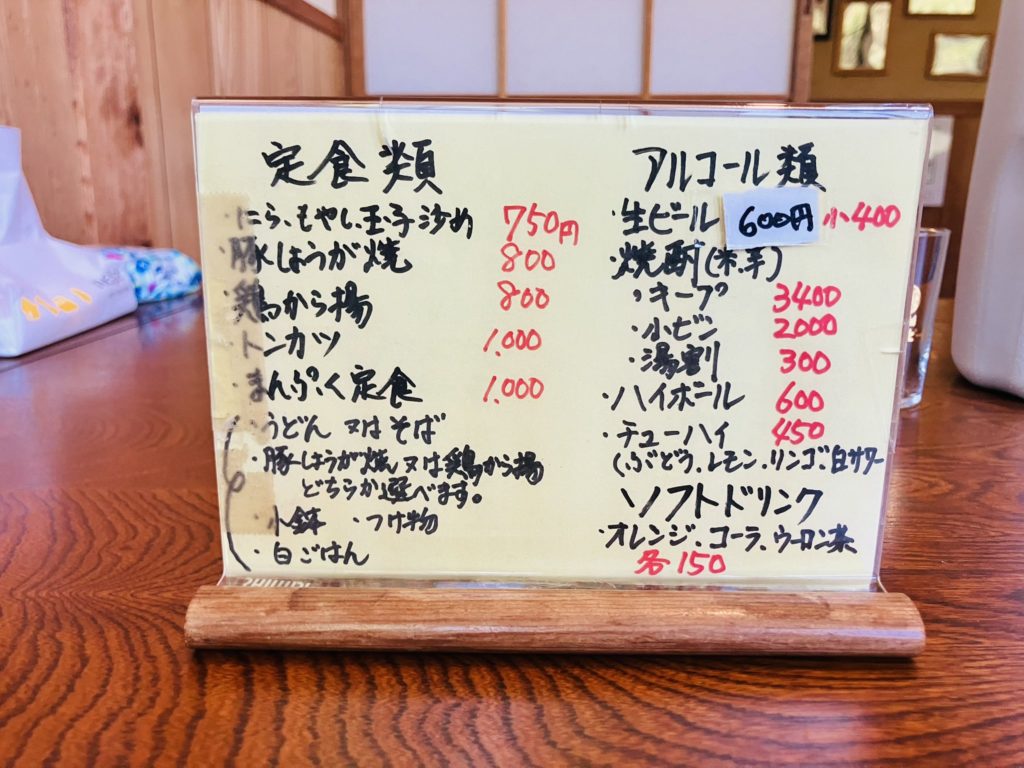 定食類
・にら、もやし、玉子炒め 750円
・豚しょうが焼 800
・鶏から揚 800
・トンカツ 1,000
・まんぷく定食 1,000
・うどん又はそば
・豚しょうが焼又は鶏から揚
どちらか選べます。
・小鉢 ・つけ物
・白ごはん
アルコール類
・生ビール 600円 小400
・焼酎(米.芋)
〃キープ 3400
〃小ビン 2000
〃湯割 300
・ハイボール 600
・チューハイ 450
(ぶどう、レモン、リンゴ、白サワー
ソフトドリンク
・オレンジ、コーラ、ウーロン茶
各150